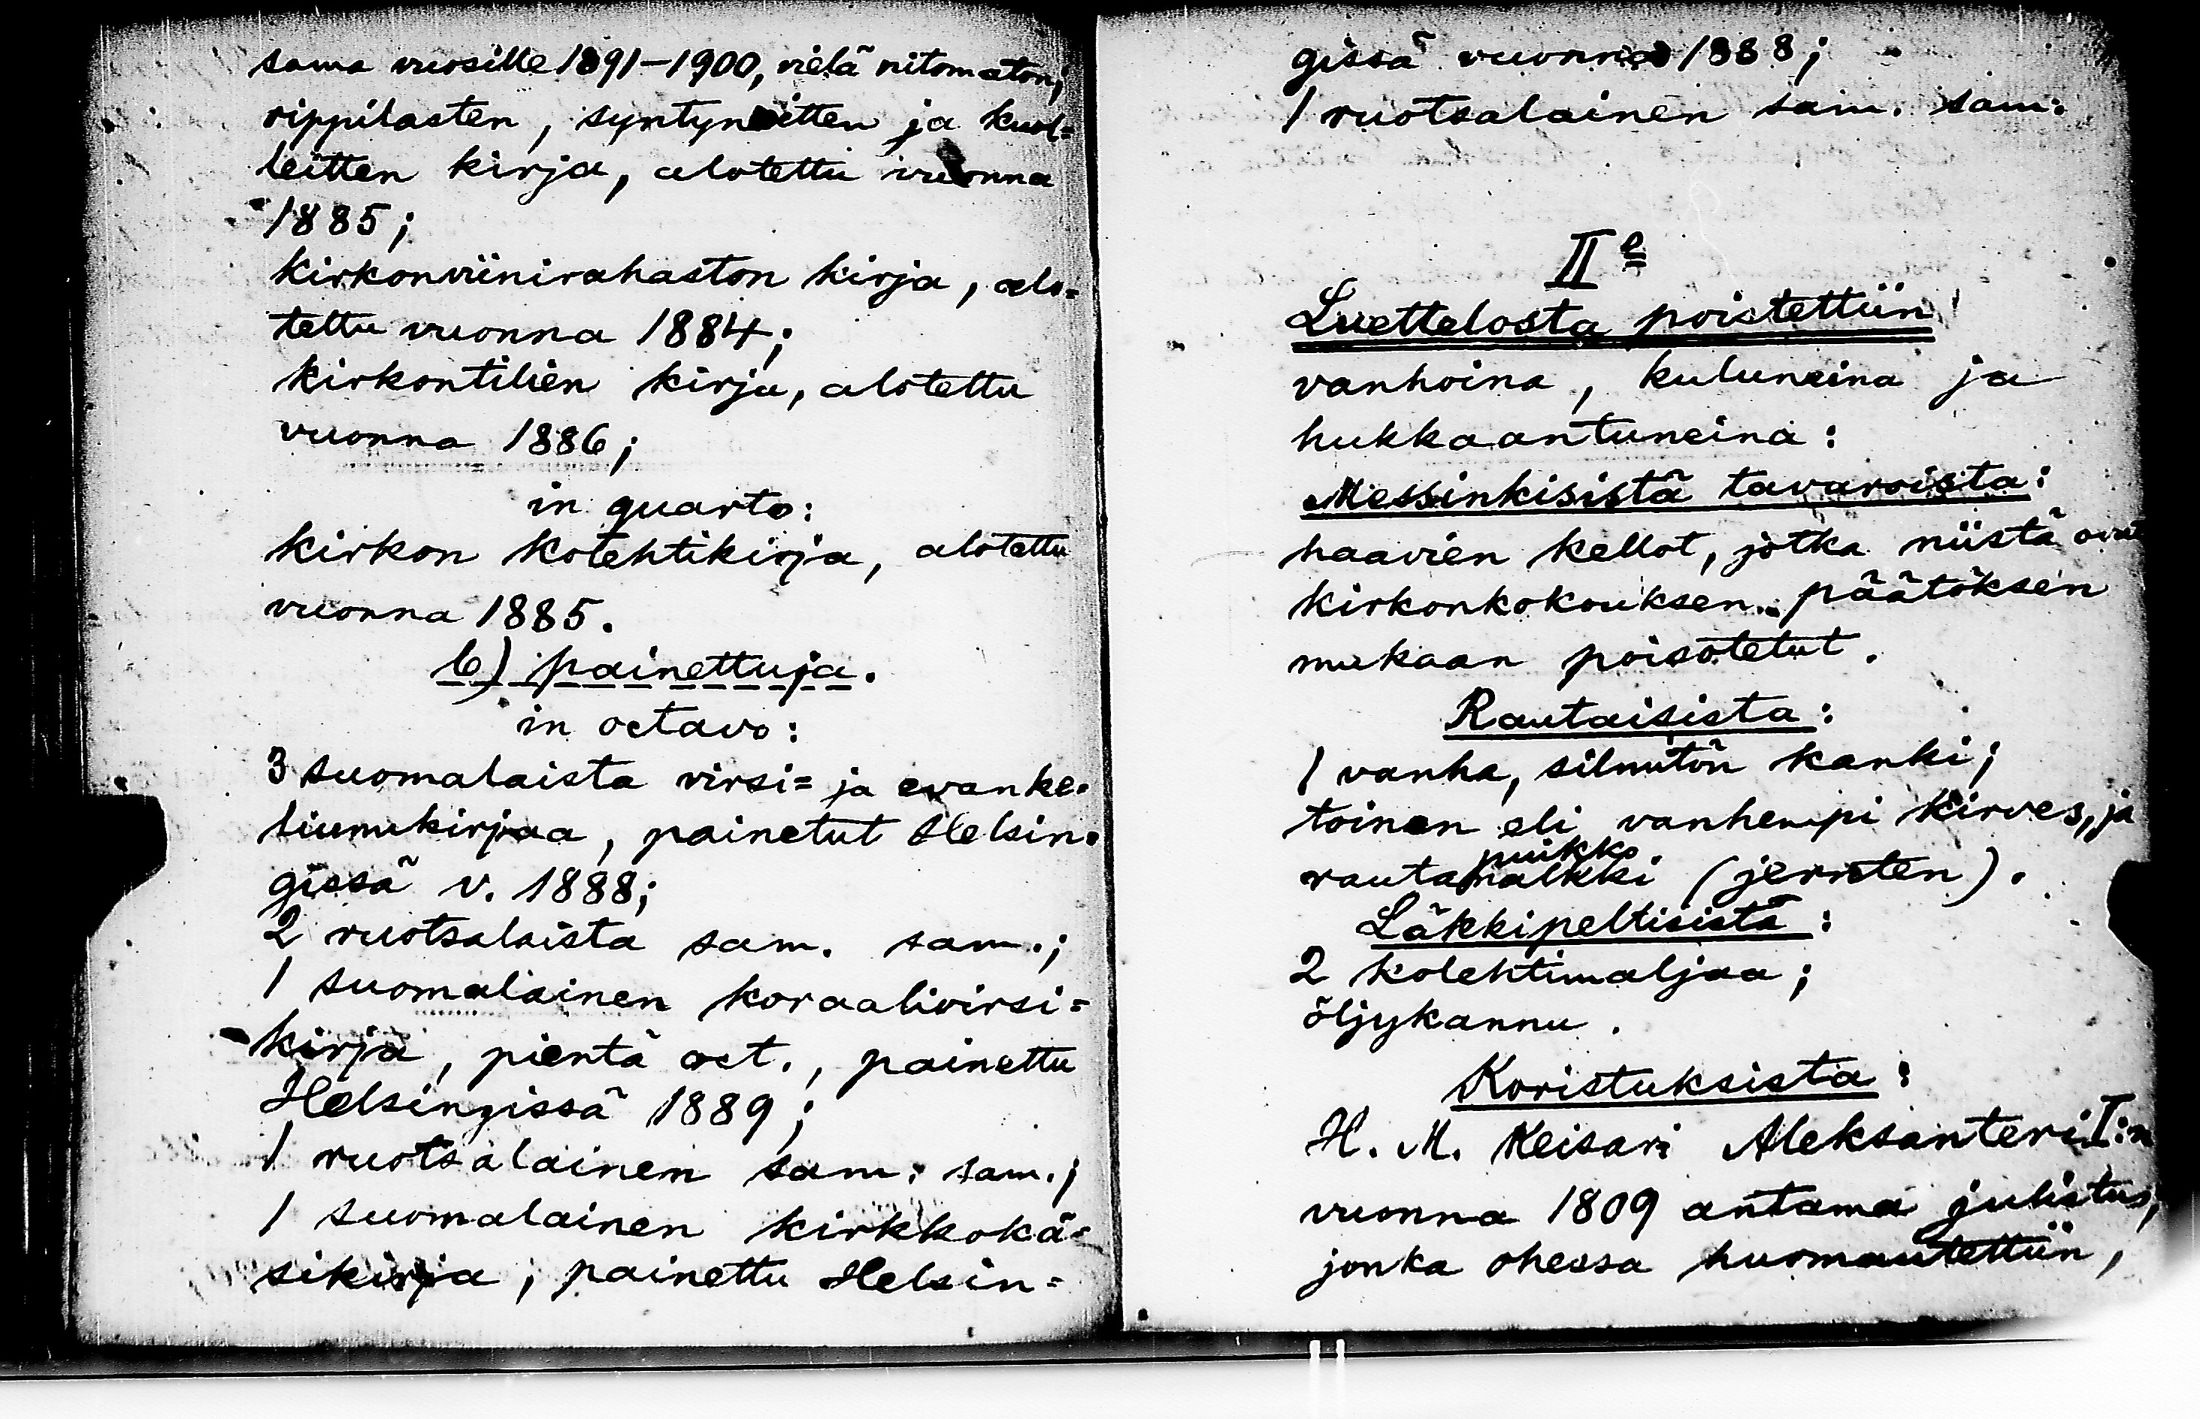 sama vuosille 1891-1900, vielä nitomaton;
rippilasten, syntyneitten ja kuol=
leitten kirja, alotettu vuonna
1885;
kirkonviinirahaston kirja, alo=
tettu vuonna 1884;
kirkontilien kirja, alotettu
vuonna 1886;
in quarto:
kirkon kolehtikirja, alotettu
vuonna 1885.
b) painettuja.
in octavo:
3 suomalaista virsi= ja evanke=
liumikirjaa, painetut Helsin=
gissä v. 1888;
2 ruotsalaista sam. sam.;
1 suomalainen koraalivirsi=
kirja, pientä oct., painettu
Helsingissä 1889;
1 ruotsalainen sam. sam.;
1 suomalainen kirkkokä=
sikirja, painettu Helsin=
gissä vuonna 1888;
1 ruotsalainen sam. sam.
II
Luettelosta poistettiin
vanhoina, kuluneina ja
hukkaantuneina:
Messinkisistä tavaroista:
haavien kellot, jotka niistä ovat
kirkonkokouksen päätöksen
mukaan poisotetut.
Rautaisista:
1 vanha, silmütön kanki;
toinen eli vanhempi kirves, ja
puikko
rautamalkki (jernten).
Läkkipeltisistä:
2 kolehtimaljaa;
öljykannu.
Koristuksista:
H. M. Keisari Aleksanteri I:n
vuonna 1809 antama julistus,
jonka ohessa huomautettiin,